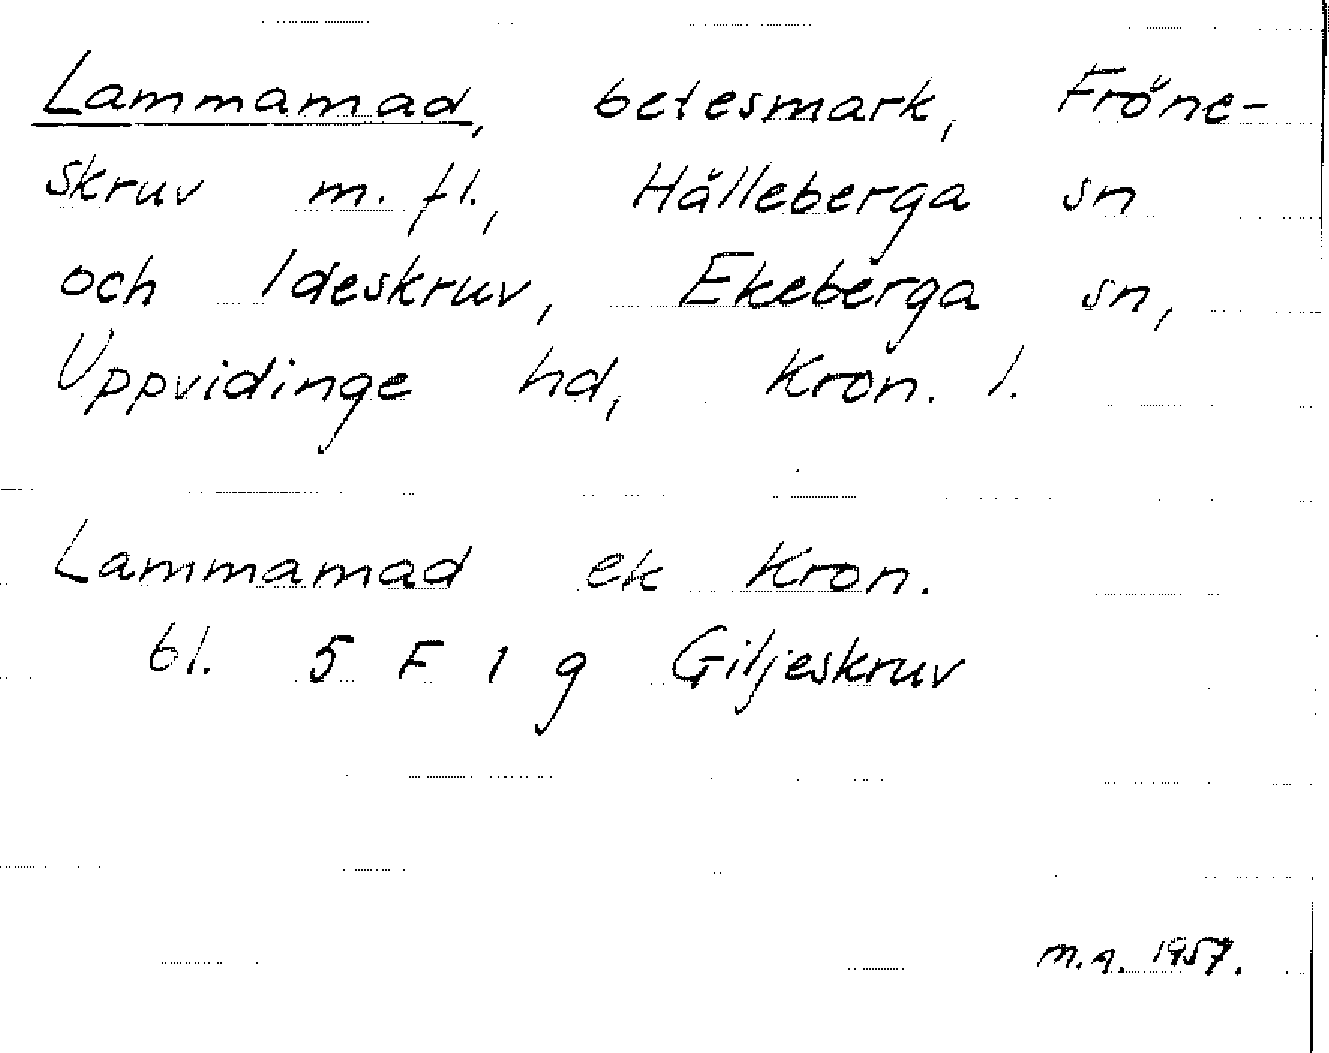 Lammamad, betesmark, Fröne-
skruv m. fl., Hälleberga sn
och Ideskruv, Ekeberga sn,
Uppvidinge hd, Kron. l.
Lammamad ek Kron.
bl. 5 F 1 g Giljeskruv
m.a. 1957.